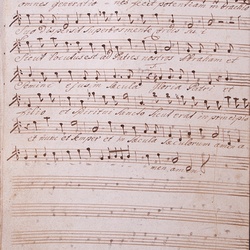 omnes generatio nes fecit potentiam in brachio
Suo dispersit superbos mente cordis su i
Sicut locutus est ad Patres nostros Abraham et
Semini ejus in saecula Gloria Patri et
Filio et Spiritui Sancto Sicut erat in principio
et nunc et semper et in saecula saeculorum amen a
men amen